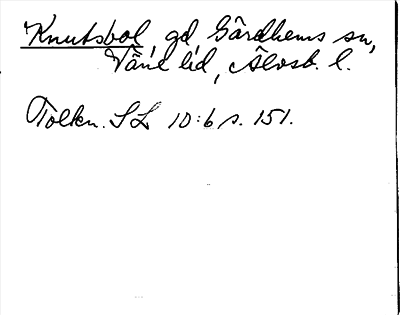 Knutsbol, gd Gärdhems sn,
Väne hd, Älvsb. l.
Tolkn. SL 10:6 s. 151.